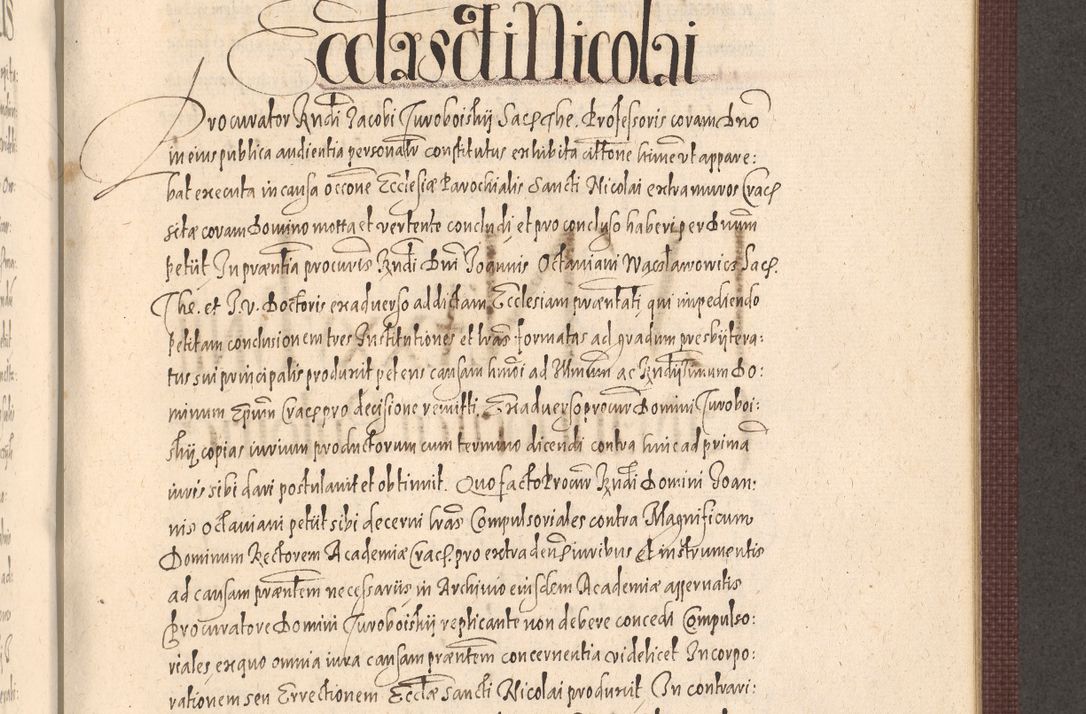 Eccla Scti Nicolai
Procurator Rndi Jacobi Turoboiskij Sac. The. Professoris coram Dno
in eius publica audientia personalr constitutus exhibita citne hinc ut appare:
bat executa in causa occone Ecclesiæ Parochialis Sancti Nicolai extra muros Crac.
sitæ coram Domino mota et vertente concludi et pro concluso haberi per Dnum
petiit In præntia procuris Rndi Dni Joannis Octaviani Wacslawowicz Sac.
The. et J. v. Doctoris ex adverso ad dictam Ecclesiam præntati, qui impediendo
petitam conclusionem tres Institutiones et lras formatas ad gradum presbijtera:
tus sui principalis produxit petens causam hmoi ad Illmum ac Rndissimum Do:
minum Epum Crac. pro decisione remitti. Ex adverso procur Domini Turoboi:
skij copias iurium productorum cum termino dicendi contra hinc ad prima
iuris sibi dari postulavit et obtinuit. Quo facto Procur Rndi Domini Joan:
nis Octaviani petiit sibi decerni lras Compulsoriales contra Magnificum
Dominum Rectorem Academiæ Crac. pro extraden. iuribus et instrumentis
ad causam præntem necessariis in Archivio eiusdem Academiæ asservatis
Procuratore Domini Turoboiskij replicante non debere concedi Compulso:
riales ex quo omnia iura causam præntem concernentia videlicet Incorpo:
rationem seu Errectionem Ecclæ Sancti Nicolai produxit. In contrari: